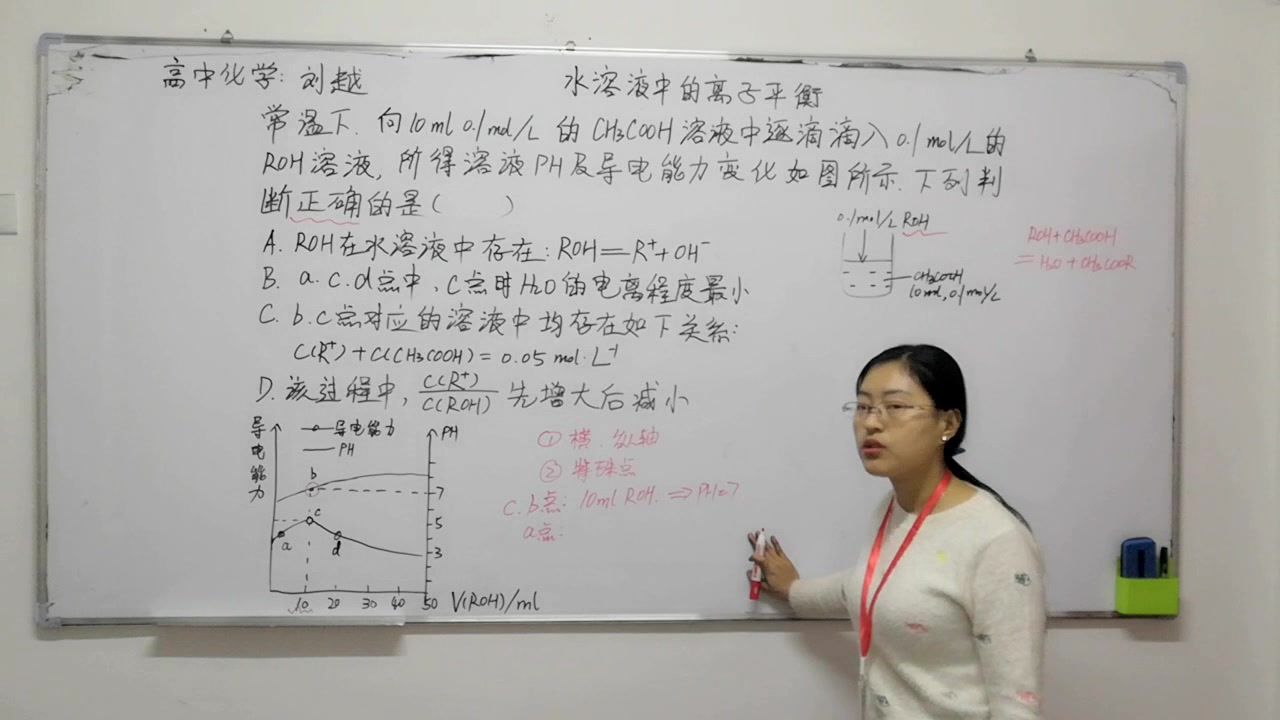 高中化学:刘越
水溶液中的离子平衡
常温下.向10ml 0.1mol/L 的 CH3COOH溶液中逐滴滴入0.1mol/L的
ROH溶液,所得溶液PH及导电能力变化如图所示.下列判
断正确的是( )
A. ROH在水溶液中存在:ROH=R⁺+OH⁻
B. a.c.d点中,C点时H2O的电离程度最小
C. b.c点对应的溶液中均存在如下关系:
C(R⁺)+C(CH3COOH)=0.05 mol·L⁻¹
D.该过程中,C(R⁺)/C(ROH)先增大后减小
0.1mol/L ROH
CH3COOH
10ml,0.1mol/L
ROH+CH3COOH
=H2O+CH3COOR
导电能力
导电能力
PH
PH
b
7
c
5
a
d
3
10 20 30 40 50 V(ROH)/ml
① 横.纵轴
② 特殊点
c.b点: 10ml ROH. ⇒PH=7
a点: